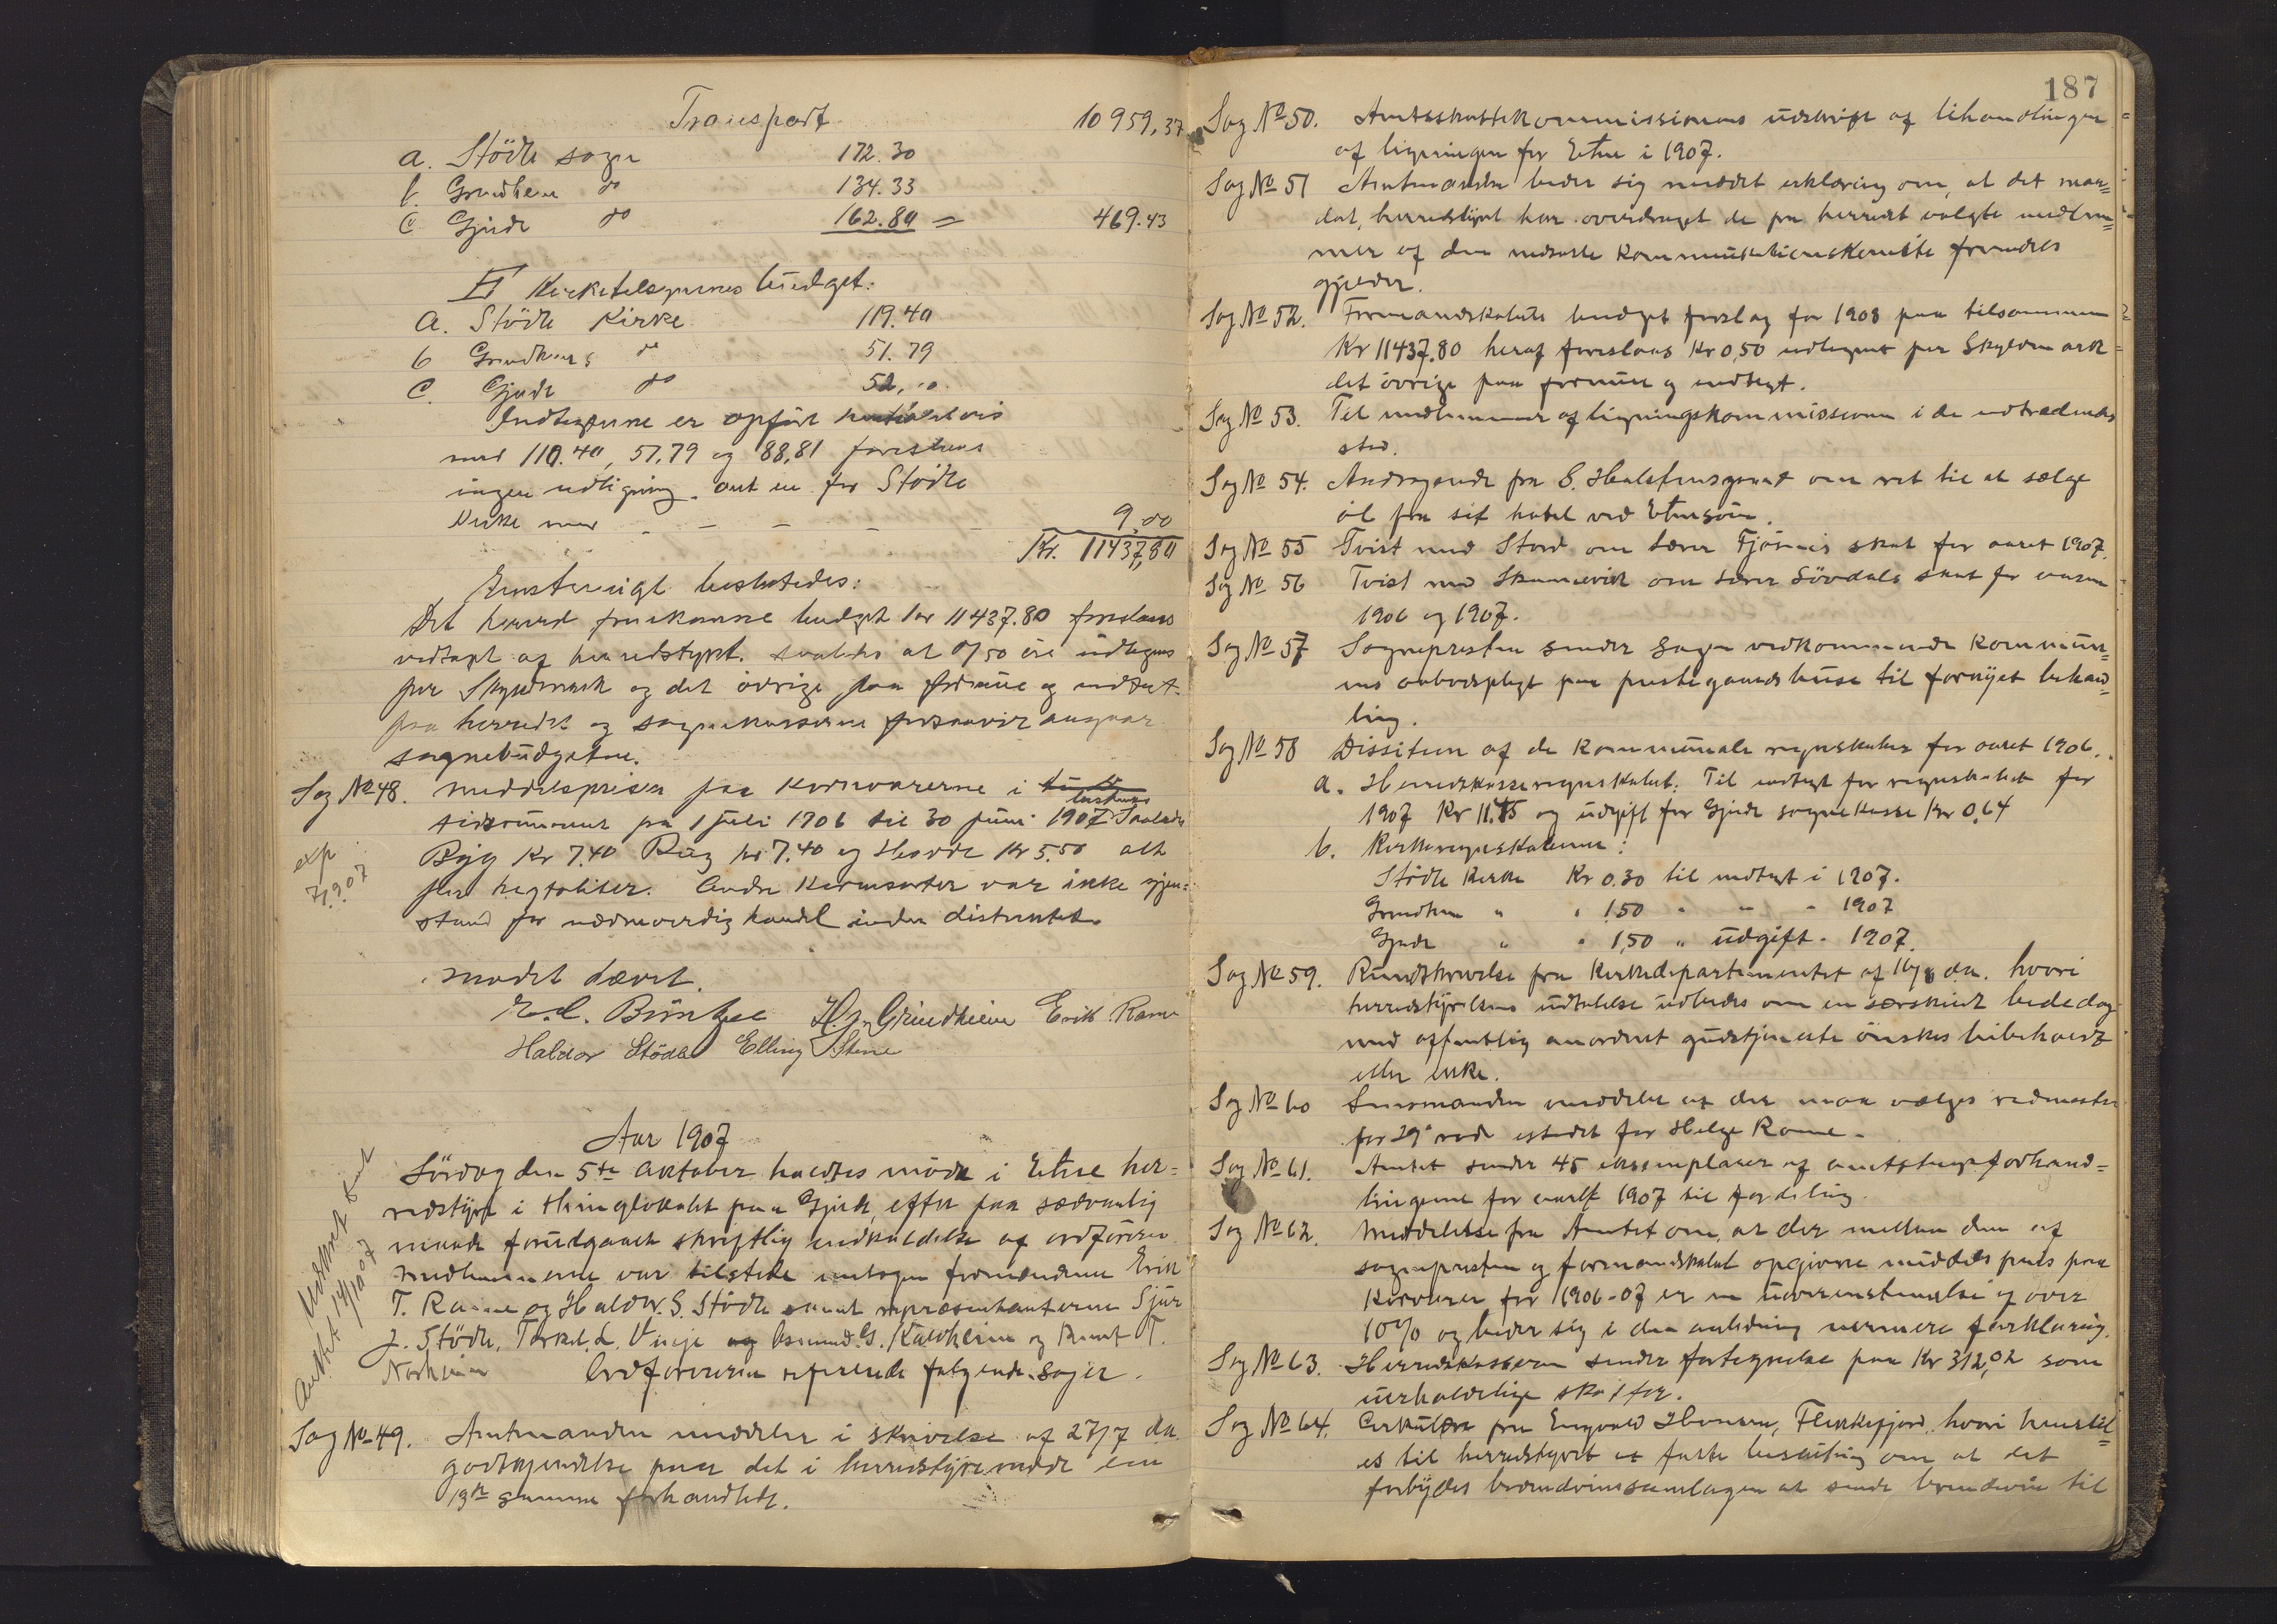 Transport 10959,37
a. Stödle sogn 172.30
b. Grindheim do 134.33
c Gjerde do 162.80 = 469.43
II Kirketilsynenes budget.
a. Stödle Kirke 119.40
b Grindheims do 51.79
c. Gjerde do 52,00
Indtægterne er opfört
med 110.40, 51.79 og 88,81 foreslaaes
ingen udligning. ant en for Stödle
Kirke med - - - - 9,00
Kr. 11437,80
Enstemigt besluttedes:
Det herved fremkomne budget kr 11437.80 foreslaaes
vedtaget af herredstyret. saaledes at 0/50 öre udlignes
per Skyldmark og det övrige paa formue og indtægt
paa herredet og sognekasserne forsaavidt angaar
sognebudgetene.
Sag No 48. Middelprisen paa kornvarerne i
tidsrummet fra 1 juli 1906 til 30 juni 1907 Saaledes
exp 7/9 07
Byg Kr 7.40 Rug kr 7.40 og Havre Kr 5.50 alt
per hegtoliter. Andre kornsorter var ikke gjen=
stand for nævneverdig handel inden distriktet.
Mödet hævet.
H. J. Grindheim Erik Rame
Haldor Stödle Elling Stene
Aar 1907
Lördag den 5te Oktober holdtes möde i Etne her=
redstyre i thinglokalet paa Gjerde, efter paa sædvanlig
maade forudgaaet skriftlig indkaldelse af ordföreren
Medlemmerne var tilstede untagen formændene Erik
T. Rame og Haldor S. Stödle samt repræsentanterne Sjur
J. Stödle, Torkel L. Vinje og Asmund G. Kaldheim og Knut T.
Norheim Ordföreren refererede fölgende sager.
Udskrevet sendt
Amtet 14/10 07
Sag No 49. Amtmanden meddeler i skrivelse af 27/7 d.a.
godkjendelse paa det i herredstyremöde den
19de samme forhandlede.
187
Sag No 50. Amtsskattekommissionens udskrift af behandlingen
af ligningen for Etne i 1907.
Sag No 51 Amtmanden beder sig meddelt erklæring om, at det man=
dat, herredstyret har overdraget de fra herredet valgte medlem=
mer af den nedsatte kommunikationskomite fremdeles
gjælder.
Sag No 52. Formandskabets budget forslag for 1908 paa tilsammen
Kr 11437.80 heraf foreslaaes Kr 0,50 udlignet per Skyldmark
det övrige paa formue og indtægt.
Sag No 53. Til medlemmer af ligningskommissionen i de udtrædendes
sted.
Sag No 54. Andragende fra S. Halsteinsgaard om ret til at sælge
öl fra sit hotel ved Etnesöen.
Sag No 55 Tvist med Stord om lærer Fjösnes skat for aaret 1907.
Sag No 56 Tvist med Skaanevik om lærer Sövdals skat for aarene
1906 og 1907.
Sag No 57 Sognepresten sender sagen vedkommende kommun=
ens aabodspligt paa prestegaardshuse til fornyet behand=
ling.
Sag No 58 Desition af de kommunale regnskaber for aaret 1906.
a. Herredskasseregnskabet: Til indtægt for regnskabet for
1907 Kr 11.45 og udgift for Gjerde sognekasse Kr 0,64
b. Kirkeregnskaberne:
Stödle Kirke Kr 0.30 til indtægt i 1907.
Grindheim " " 1,50 " " " 1907
Gjerde " " 1,50 " udgift " 1907.
Sag No 59. Rundskrivelse fra Kirkedepartementet af 16/8 d.a. hvori
herredstyrelsens udtalelse udbedes om en særskilt bededag
med offentlig anordnet gudstjeneste önskes bibeholdt
eller ikke.
Sag No 60 Lensmanden meddeler at der maa vælges rodmester
for 29de rode istedet for Helge Rame.
Sag No 61. Amtet sender 45 eksemplarer af amtstings forhand=
lingerne for aaret 1907 til fordeling.
Sag No 62. Meddelelse fra Amtet om, at der mellem den af
sognepresten og formandskabet opgivne middels pris paa
kornvarer for 1906-07 er en uoverenstemmelse af over
10% og beder sig i den anledning nærmere forklaring.
Sag No 63. Herredskasseren sender fortegnelse paa Kr 312,02 som
uerholdelige skatter.
Sag No 64. Cirkulære fra Engvald Hansen, Flekkefjord, hvori henstil=
es til herredstyret at fatte beslutning om at det
forbydes brændevinssamlagen at sende brændevin til